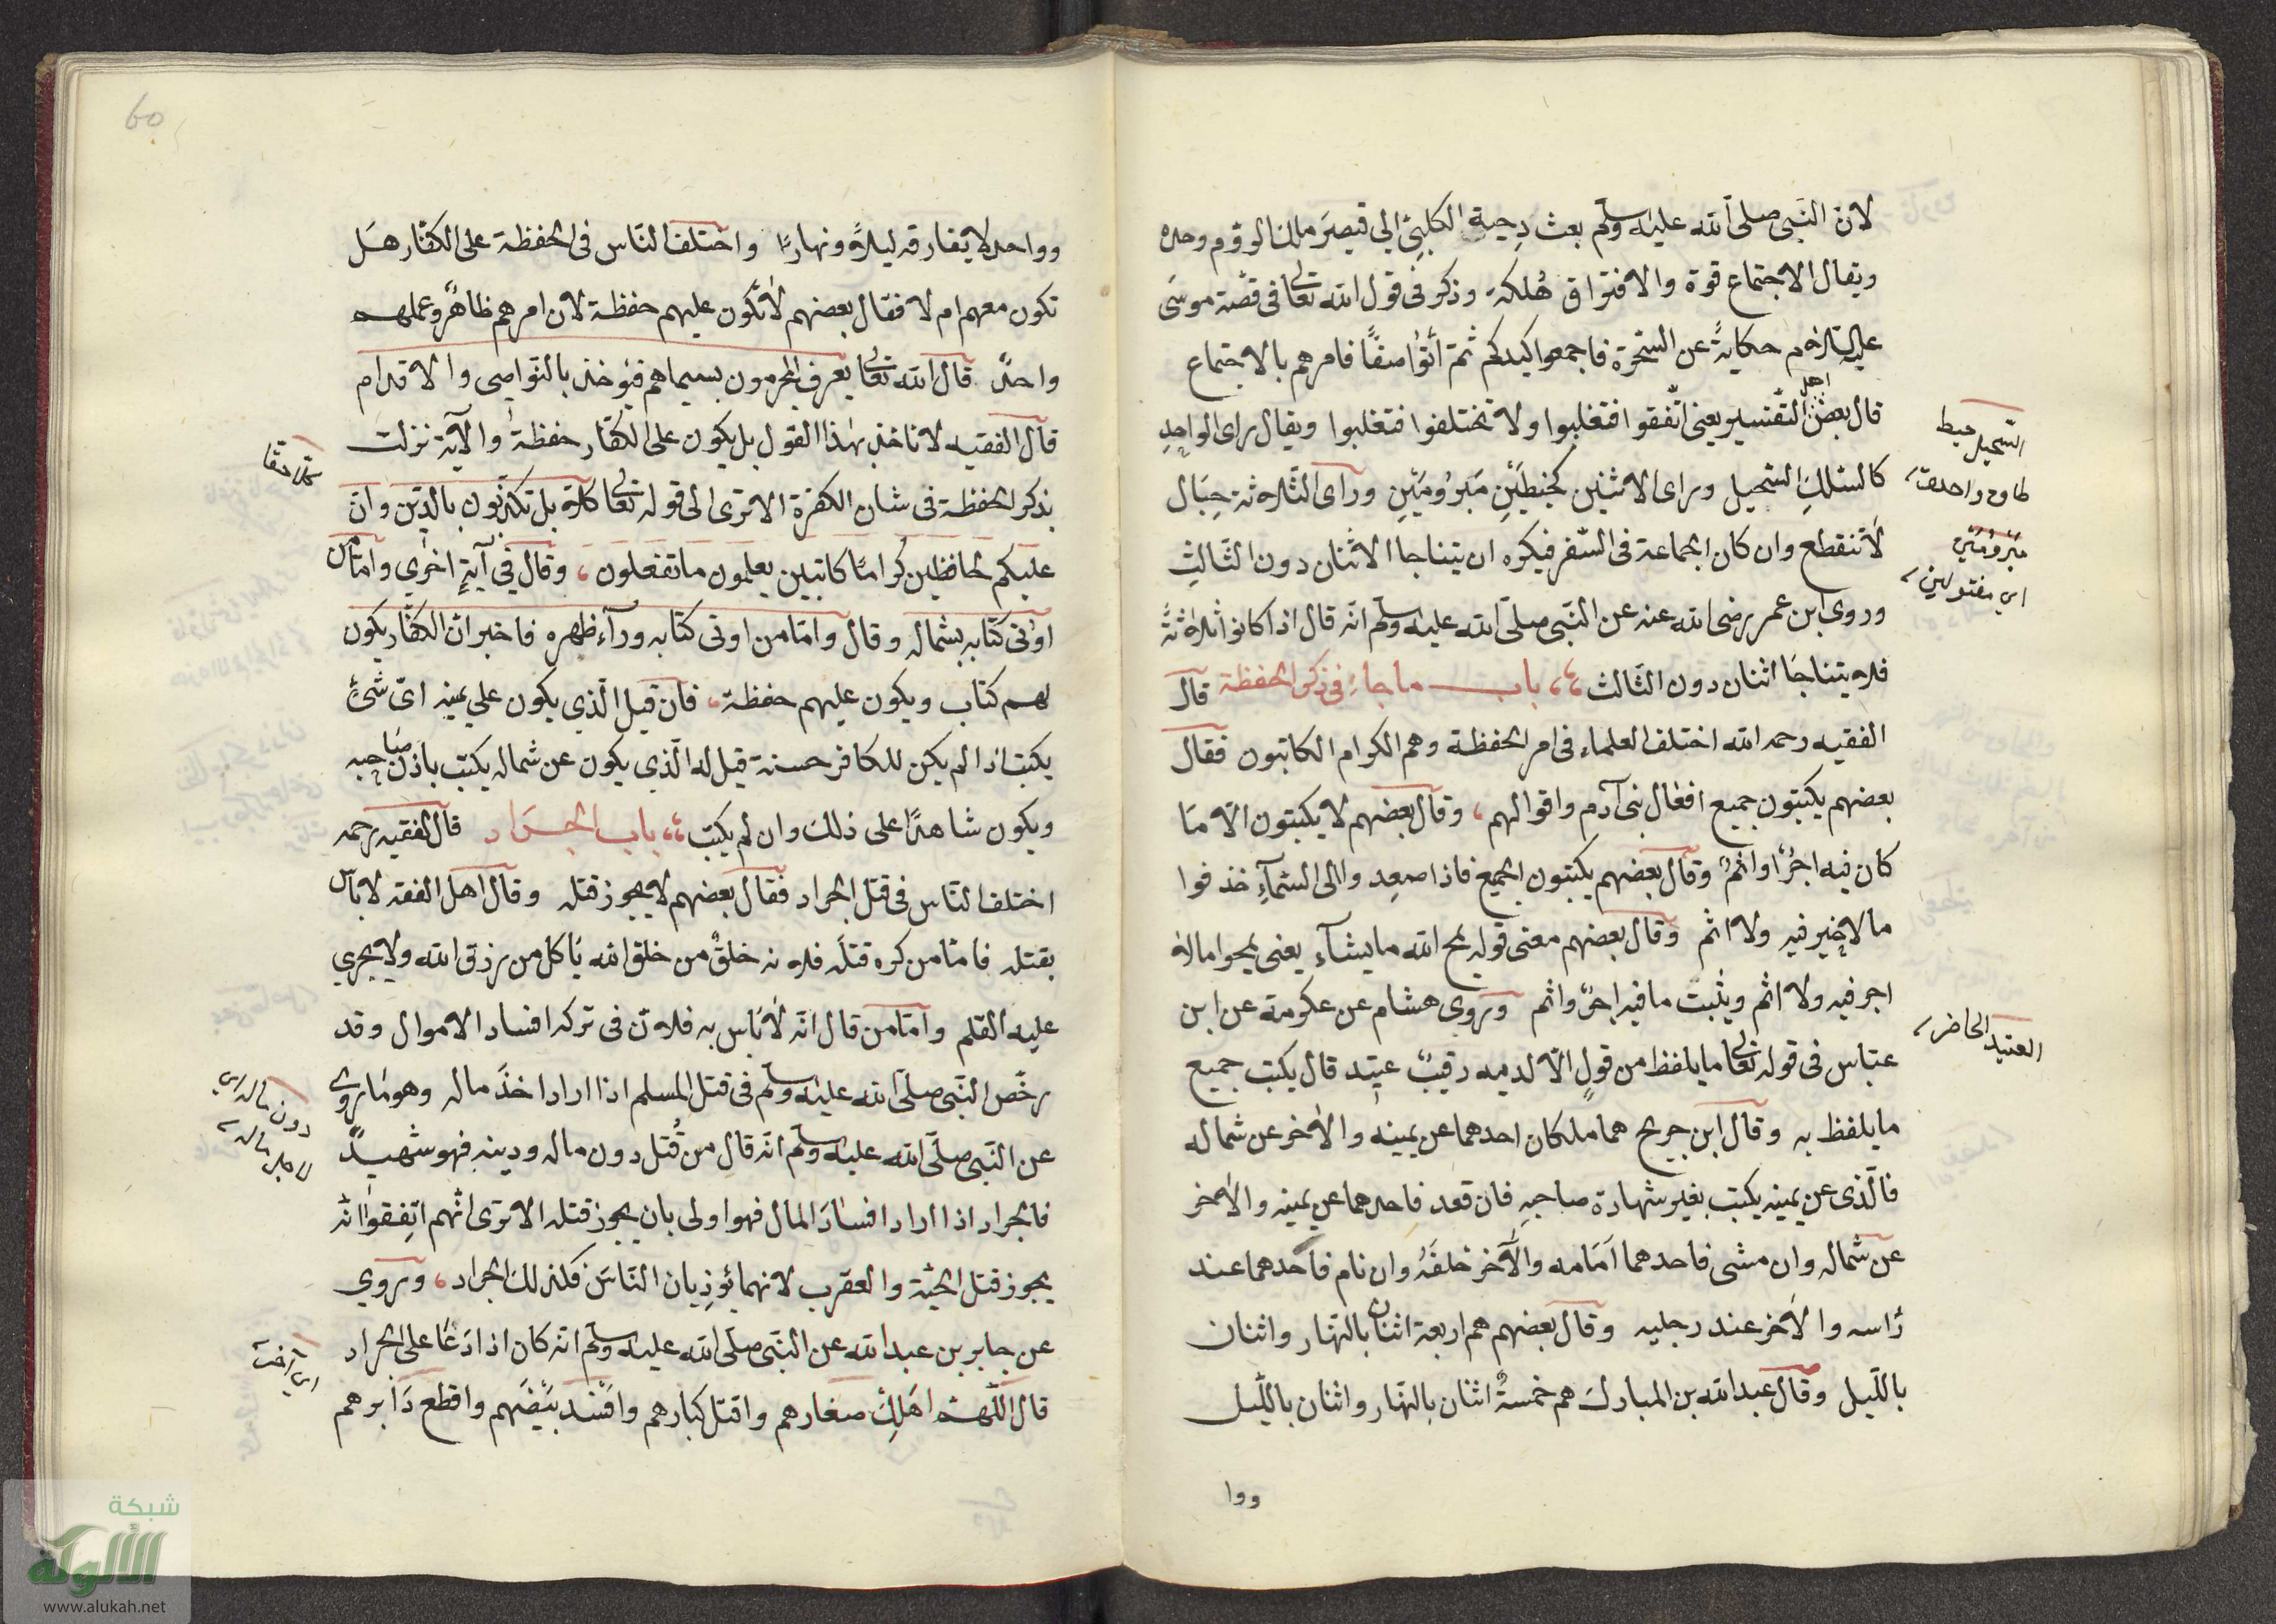 لان النبي صلى الله عليه وسلم بعث دحية الكلبي الي قيصر ملك الروم وحده
ويقال الاجتماع قوة والافتراق هلكة وذكر في قول الله تعالى في قصة موسى
عليه السلام حكاية عن السحرة فاجمعوا كيدكم ثم أتوا صفا فامرهم بالاجتماع
قال بعض اهل التفسير يعني اتفقوا فتغلبوا ولا تختلفوا فتغلبوا ويقال راى الواحد
كالسلك السحيل وراى الاثنين كخيطين مبرومين وراى الثلاثة حبال
لا تنقطع وان كان الجماعة في السفر فيكره ان يتناجا الاثنان دون الثالث
وروى ابن عمر رضى الله عنه عن النبي صلى الله عليه وسلم انه قال اذا كانوا ثلاثة
فلا يتناجا اثنان دون الثالث باب ما جاء في ذكر الحفظة قال
الفقيه رحمه الله اختلف العلماء في امر الحفظة وهم الكرام الكاتبون فقال
بعضهم يكتبون جميع افعال بني آدم واقوالهم، وقال بعضهم لا يكتبون الا ما
كان فيه اجر او اثم وقال بعضهم يكتبون الجميع فاذا صعدوا الى السماء خذفوا
ما لا خير فيه ولا اثم وقال بعضهم معنى قوله يمح الله ما يشاء يعنى يمحوا مالا
اجر فيه ولا اثم ويثبت ما فيه اجر واثم وروى هشام عن عكرمة عن ابن
عباس في قوله تعالى ما يلفظ من قول الا لديه رقيب عتيد قال يكتب جميع
ما يلفظ به وقال ابن جريح هما ملكان احدهما عن يمينه والاخر عن شماله
فالذى عن يمينه يكتب بغير شهادة صاحبه فان قعد فاحدهما عن يمينه والاخر
عن شماله وان مشى فاحدهما امامه والآخر خلفه وان نام فاحدهما عند
راسه والاخر عند رجليه وقال بعضهم هم اربعة اثنان بالنهار واثنان
بالليل وقال عبد الله بن المبارك هم خمسة اثنان بالنهار واثنان بالليل
ووا
السحيل خيط
طاق واحدة
مبرومين
اي مفتولين
العتيد الحاضر
60
وواحد لا يفارقه ليلا ونهارا واختلف الناس في الحفظة على الكفار هل
تكون معهم ام لا فقال بعضهم لا تكون عليهم حفظة لان امرهم ظاهر وعملهم
واحد قال الله تعالى يعرف المجرمون بسيماهم فيؤخذ بالنواصى والاقدام
قال الفقيه لا ناخذ بهذا القول بل يكون على الكفار حفظة والآية نزلت
بذكر الحفظة في شان الكفرة الا ترى الى قوله تعالى كلا بل تكذبون بالدين وان
عليكم لحافظين كراما كاتبين يعلمون ما تفعلون، وقال في آية اخرى واما من
اوتى كتابه بشماله وقال واما من اوتى كتابه ورآء ظهره فاخبر ان الكفار يكون
لهم كتاب ويكون عليهم حفظة، فان قيل الذي يكون على يمينه اى شئ
يكتب اذا لم يكن للكافر حسنة قيل له الذي يكون عن شماله يكتب باذن صاحبه
ويكون شاهدا على ذلك وان لم يكتب باب الجراد قال الفقيه رحمه
اختلف الناس في قتل الجراد فقال بعضهم لا يجوز قتله وقال اهل الفقه لا بأس
بقتله فاما من كره قتله فلانه خلق من خلق الله ياكل من رزق الله ولا يجري
عليه القلم واما من قال انه لا باس به فلان في تركه افساد الاموال وقد
رخص النبي صلى الله عليه وسلم في قتل المسلم اذا اراد اخذ ماله وهو ما روي
عن النبي صلى الله عليه وسلم انه قال من قتل دون ماله ودينه فهو شهيد
فالجراد اذا اراد افساد المال فهو اولى بان يجوز قتله الا ترى انهم اتفقوا انه
يجوز قتل الحية والعقرب لانهما يؤذيان الناس فكذلك الجراد، وروي
عن جابر بن عبد الله عن النبي صلى الله عليه وسلم انه كان اذا دعا على الجراد
قال اللهم اهلك صغارهم واقتل كبارهم وافسد بيضهم واقطع دابرهم
دون ماله اي
لاجل ماله
شبكة
الألوكة
www.alukah.net